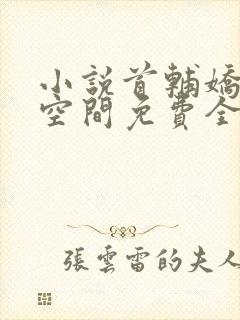 小說首輔嬌
空間免費全
張雲雷的夫人